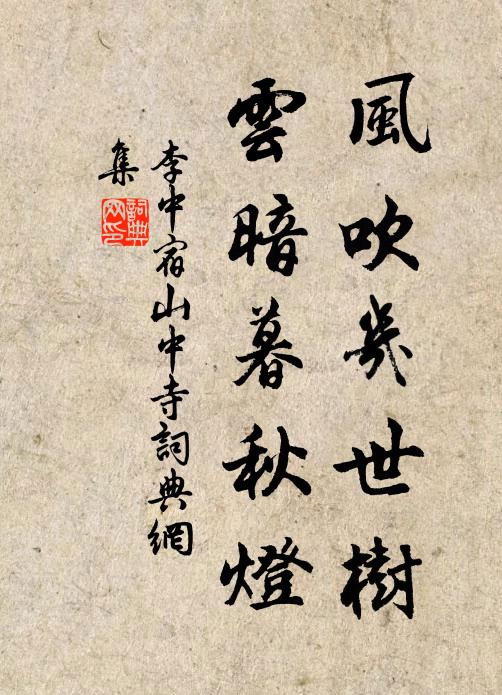 風吹幾世樹
雲暗暮秋燈
李中宿山中寺詞典網
集
詞典
网印